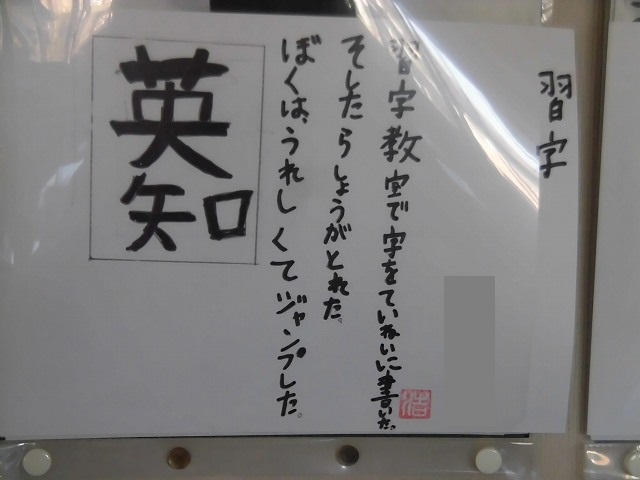 習字
習字教室で字をていねいに書いた。
そしたらしょうがとれた。
ぼくは、うれしくてジャンプした。
英知
浩